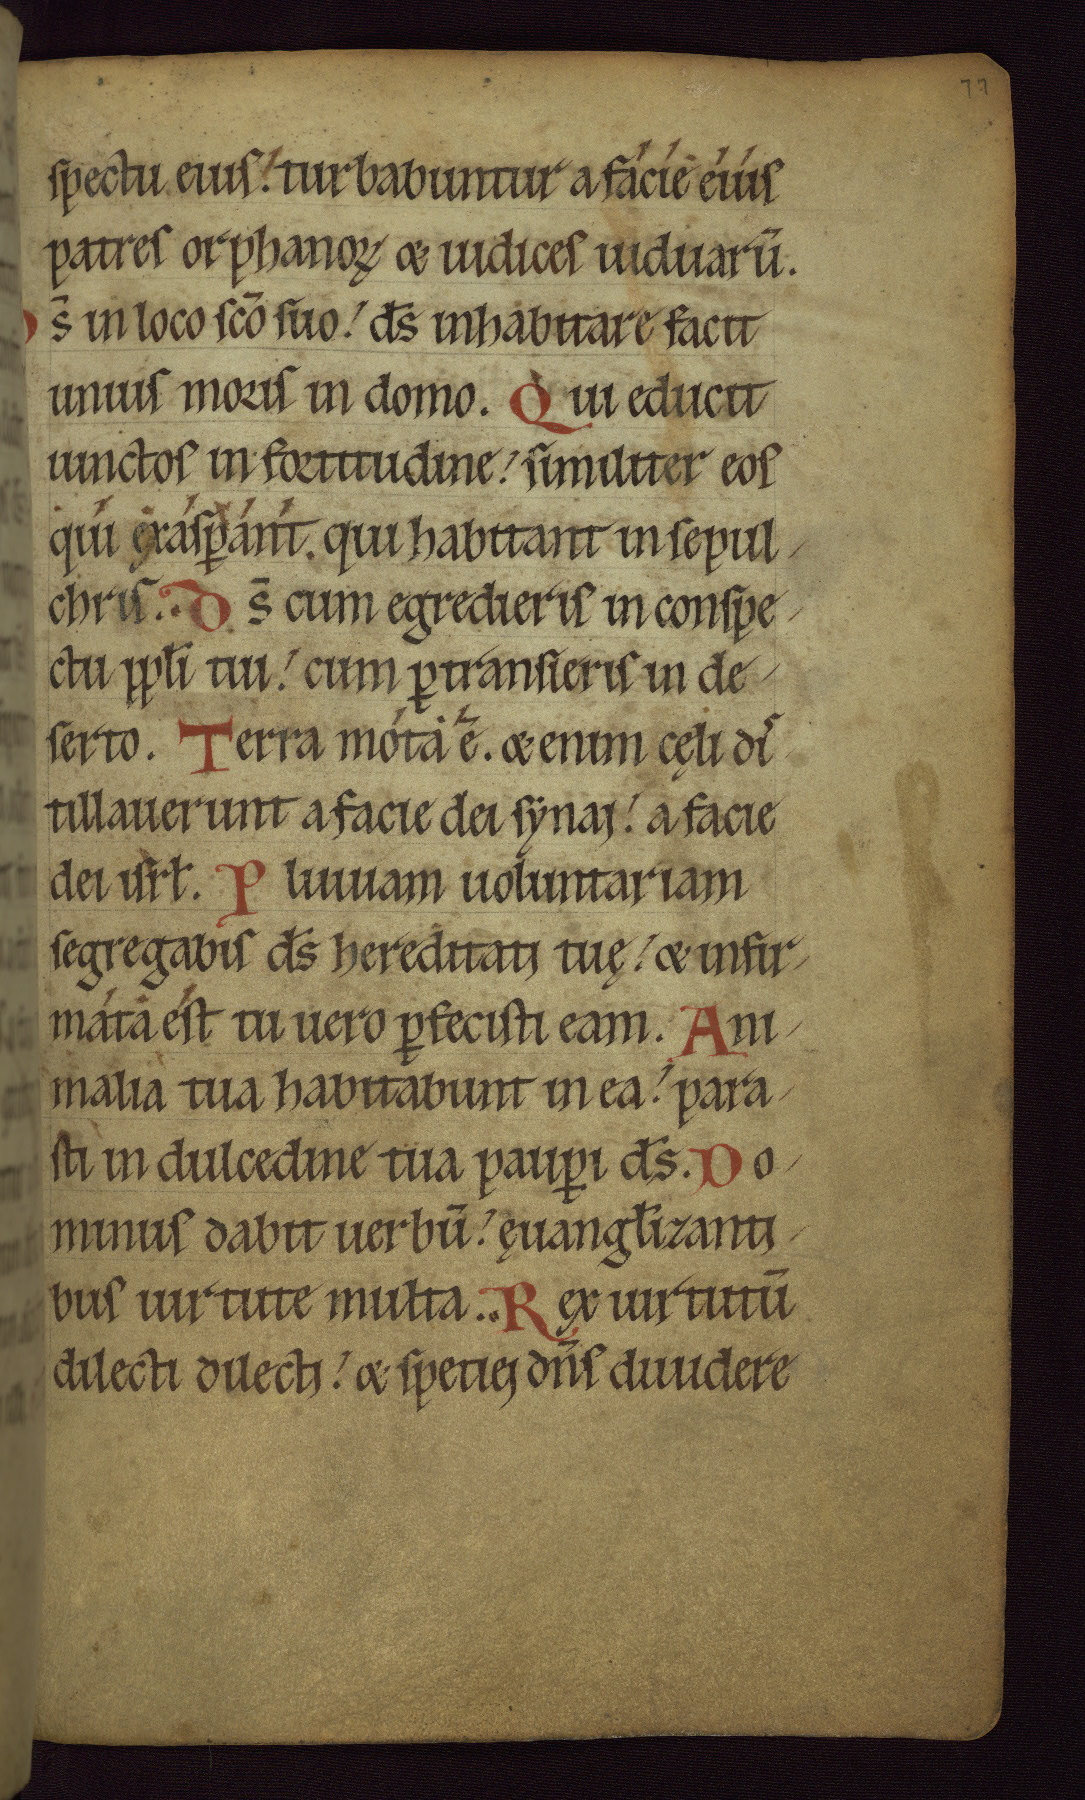 77
spectu eius! turbabuntur a fácíe éíus
patres orphanoꝝ & iudices uiduarū.
Ds̄ in loco scō suo! ds̄ inhabitare facit
unius moris in domo. Qui educit
uinctos in fortitudine! similiter eos
qúi exásꝑánt. qui habitant in sepul-
chris.. Ds̄ cum egredieris in conspe-
ctu ppłi tui! cum ꝑtransieris in de-
serto. Terra móta ē. & enim cęli dis
tillauerunt a facie dei sẏnaj! a facie
dei isrł. Pluuiam uoluntariam
segregabis ds̄ hereditatj tuę! & infir-
máta ést tu uero ꝑfecisti eam. Ani-
malia tua habitabunt in ea! para-
sti in dulcedine tua pauꝑi ds̄. Do-
minus dabit uerbū! ęuangłizantj-
bus uirtute multa.. Rex uirtutū
dilecti dilectj! & spetiej dn̄s diuidere